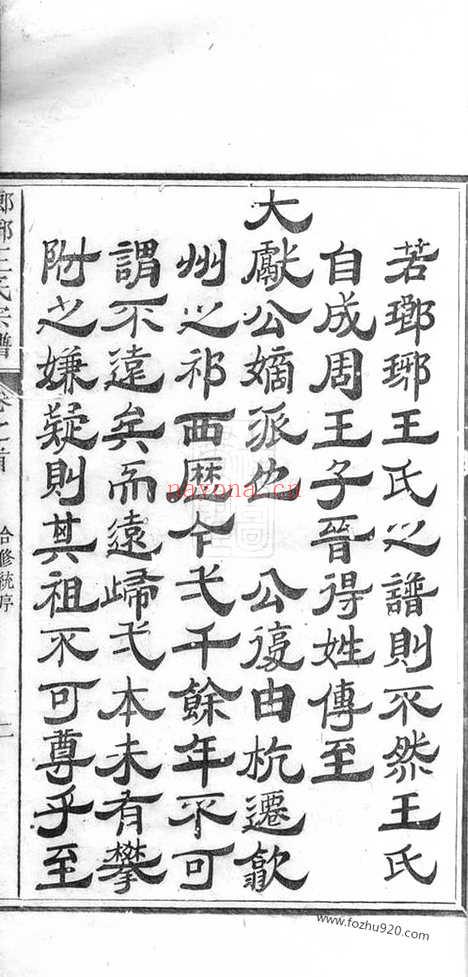 若瑯琊王氏之譜則不然王氏
自成周王子晉得姓傳至
大獻公嫡派也 公復由杭遷歙
州之祁西歷今弌千餘年不可
謂不遠矣而遠歸弌本未有攀
附之嫌疑則其祖不可尊乎至
瑯琊王氏宗譜 卷之首 合修統序 二
nayona.cn
www.fozhu920.com